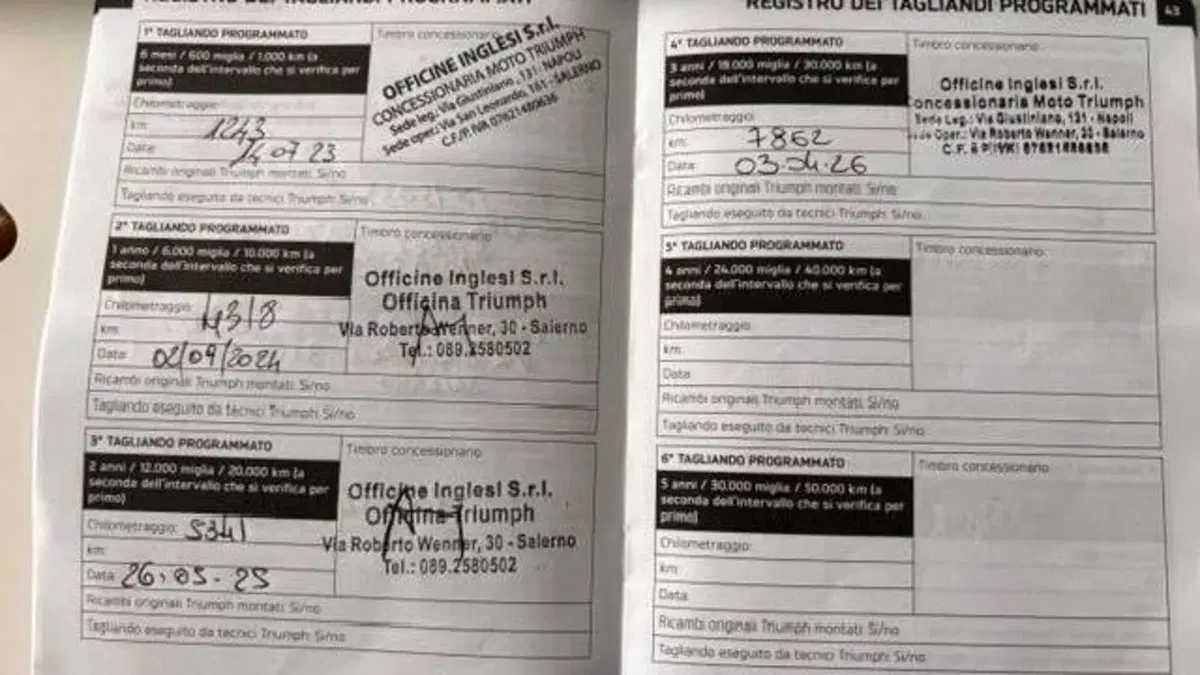 REGISTRO DEI TAGLIANDI PROGRAMMATI
1° TAGLIANDO PROGRAMMATO
6 mesi / 600 miglia / 1.000 km (a
seconda dell'intervallo che si verifica per
primo)
Chilometraggio:
km: 1243
Data: 14 07 23
Ricambi originali Triumph montati: Si/no
Tagliando eseguito da tecnici Triumph: Si/no
Timbro concessionario:
OFFICINE INGLESI S.r.l.
CONCESSIONARIA MOTO TRIUMPH
Sede leg.: Via Giustiniano, 131 - NAPOLI
Sede oper.: Via San Leonardo, 161 - SALERNO
C.F./P. IVA 07621480636
2° TAGLIANDO PROGRAMMATO
1 anno / 6.000 miglia / 10.000 km (a
seconda dell'intervallo che si verifica per
primo)
Chilometraggio: 4318
km:
Data: 02/09/2024
Ricambi originali Triumph montati: Si/no
Tagliando eseguito da tecnici Triumph: Si/no
Timbro concessionario:
Officine Inglesi S.r.l.
Officina Triumph
Via Roberto Wenner, 30 - Salerno
Tel.: 089.2580502
3° TAGLIANDO PROGRAMMATO
2 anni / 12.000 miglia / 20.000 km (a
seconda dell'intervallo che si verifica per
primo)
Chilometraggio: 5341
km:
Data: 26.05-25
Ricambi originali Triumph montati: Si/no
Tagliando eseguito da tecnici Triumph: Si/no
Timbro concessionario:
Officine Inglesi S.r.l.
Officina Triumph
Via Roberto Wenner, 30 - Salerno
Tel.: 089.2580502
REGISTRO DEI TAGLIANDI PROGRAMMATI 43
4° TAGLIANDO PROGRAMMATO
3 anni / 18.000 miglia / 30.000 km (a
seconda dell'intervallo che si verifica per
primo)
Chilometraggio:
km: 7862
Data: 03.04.26
Ricambi originali Triumph montati: Si/no
Tagliando eseguito da tecnici Triumph: Si/no
Timbro concessionario:
Officine Inglesi S.r.l.
Concessionaria Moto Triumph
Sede Leg.: Via Giustiniano, 131 - Napoli
Oper.: Via Roberto Wenner, 30 - Salerno
C.F. e P.IVA:
5° TAGLIANDO PROGRAMMATO
4 anni / 24.000 miglia / 40.000 km (a
seconda dell'intervallo che si verifica per
primo)
Chilometraggio:
km:
Data:
Ricambi originali Triumph montati: Si/no
Tagliando eseguito da tecnici Triumph: Si/no
Timbro concessionario:
6° TAGLIANDO PROGRAMMATO
5 anni / 30.000 miglia / 50.000 km (a
seconda dell'intervallo che si verifica per
primo)
Chilometraggio:
km:
Data:
Ricambi originali Triumph montati: Si/no
Tagliando eseguito da tecnici Triumph: Si/no
Timbro concessionario: